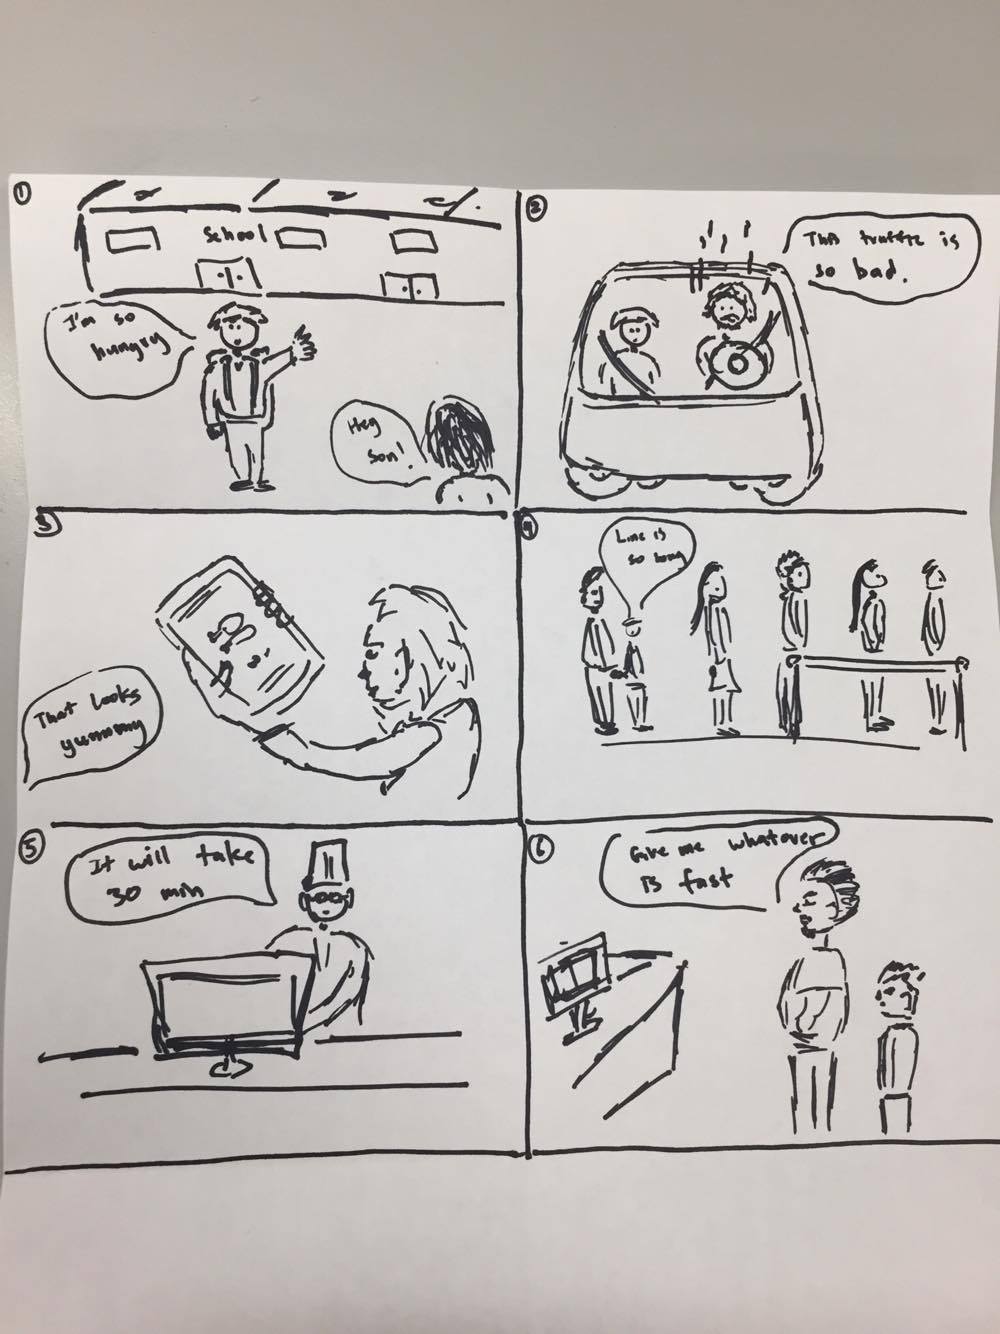 1
School
I'm so
hungry
Hey
Son!
2
This traffic is
so bad.
3
That looks
yummy
4
Line is
so long
5
It will take
30 min
6
Give me whatever
is fast